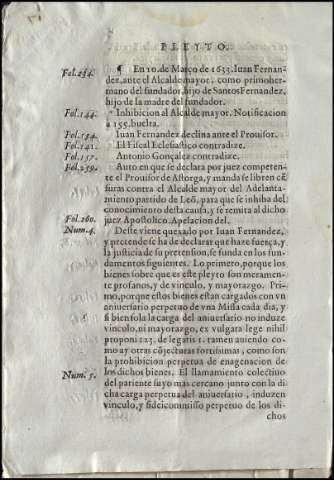 PLEYTO.
Fol.234. ¶ En 10. de Março de 1633. Iuan Fernan-
dez, ante el Alcalde mayor, como primo her-
mano del fundador, hijo de Santos Fernandez,
hijo de la madre del fundador.
Fol.144. Inhibicion al Alcalde mayor. Notificacion
a 155. buelta.
Fol.154. Iuan Fernandez declina ante el Prouisor.
Fol.141. El Fiscal Eclesiastico contradize.
Fol.157. Antonio Gonçalez contradize.
Fol.259. Auto en que se declara por juez competen-
te el Prouisor de Astorga, y manda se libren cē-
suras contra el Alcalde mayor del Adelanta-
miento partido de Leō, para que se inhiba del
conocimiento desta causa, y se remita al dicho
Fol.260. juez Apostolico. Apelacion del.
Num.4. Deste viene quexado por Iuan Fernandez,
y pretende se ha de declarar que haze fuerça, y
la justicia de su pretension, se funda en los fun-
damentos siguientes. Lo primero, porque los
bienes sobre que es este pleyto son meramen-
te profanos, y de vinculo, y mayorazgo. Pri-
mo, porque estos bienes estan cargados con vn
aniuersario perpetuo de vna Missa cada dia, y
si bien sola la carga del aniuersario no induze
vinculo, ni mayorazgo, ex vulgata lege nihil
proponi 123. de legatis 1. ramen auiendo
como ay otras cōjecturas fortissimas, como son
la prohibicion perpetua de enagenacion de
Num. 5. los dichos bienes. El llamamiento colectiuo
del pariente suyo mas cercano junto con la di
cha carga perpetua del aniuersario, induzen
vinculo, y fideicomisso perpetuo de los di-
chos